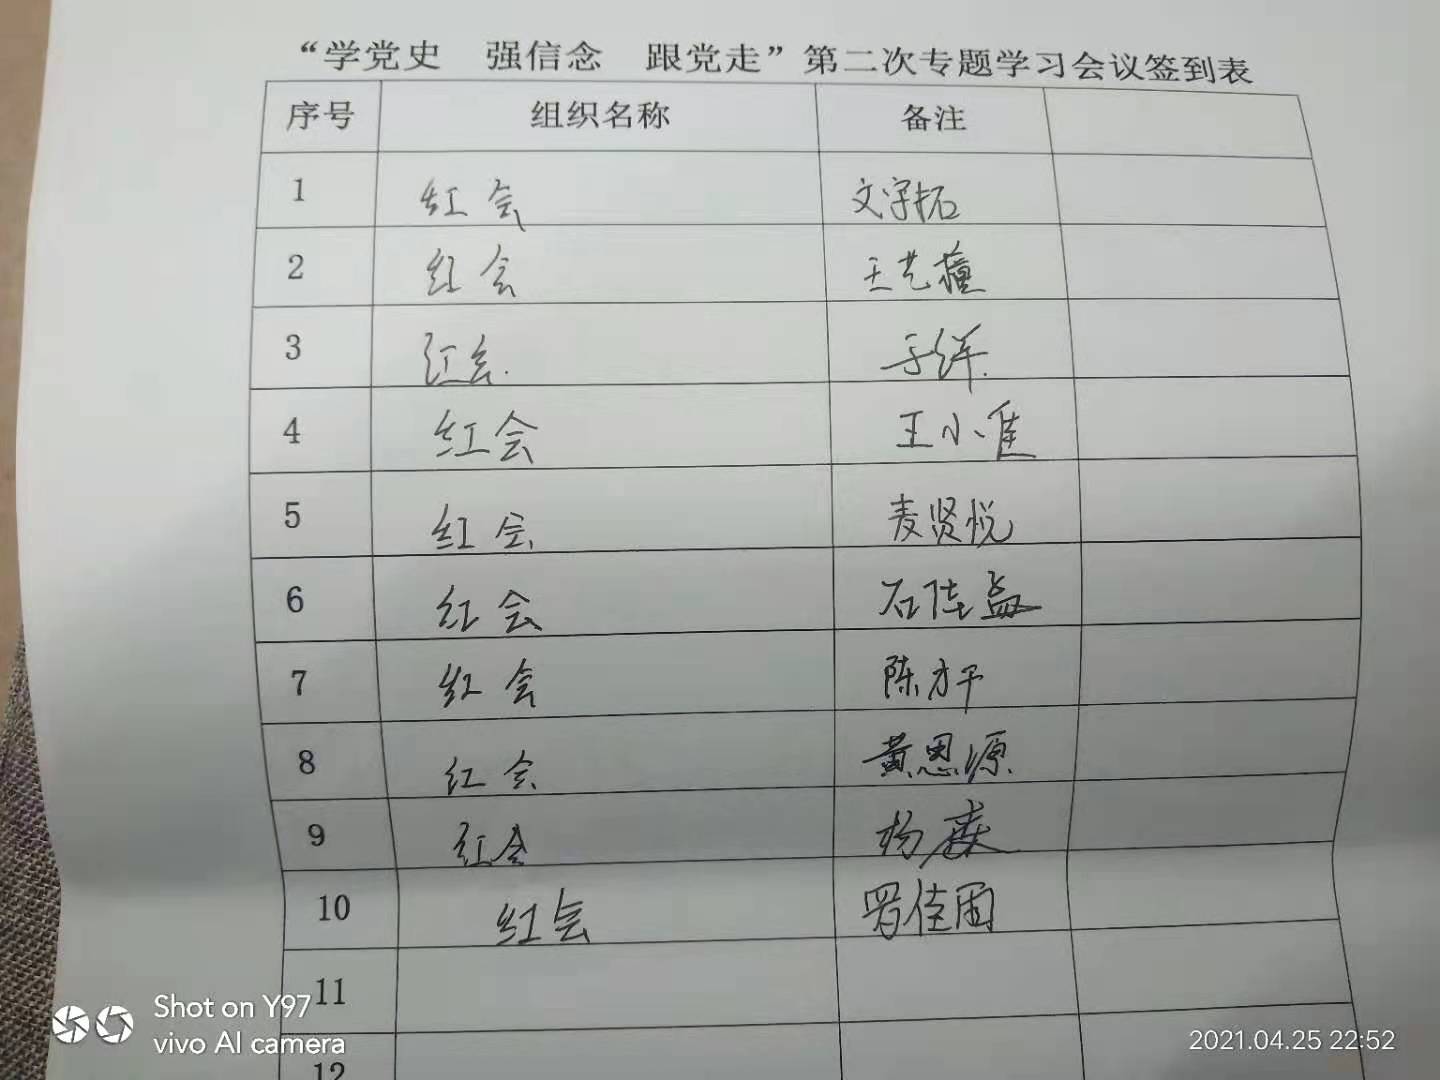 “学党史　强信念　跟党走”第二次专题学习会议签到表
序号 组织名称 备注
1 红会 文宇拓
2 红会 王艺
3 红会. 于洋.
4 红会 王小佳
5 红会 麦贤悦
6 红会 石佳益
7 红会 陈才干
8 红会 黄恩源
9 红会 杨森
10 红会 罗佳围
11
12
Shot on Y97
vivo AI camera
2021.04.25 22:52